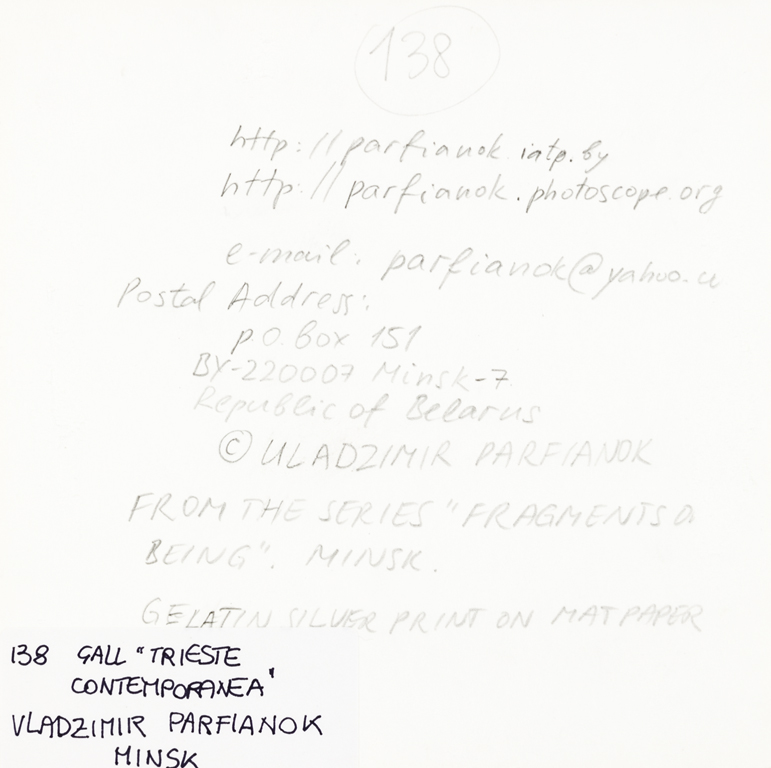 138
http://parfianok.iatp.by
http://parfianok.photoscope.org
e-mail: parfianok@yahoo.
Postal Address:
p.o.box 151
BY-220007 Minsk-7
Republic of Belarus
© ULADZIMIR PARFIANOK
FROM THE SERIES "FRAGMENTS O
BEING". MINSK.
GELATIN SILVER PRINT ON MAT PAPER
138 GALL "TRIESTE
CONTEMPORANEA"
VLADZIMIR PARFIANOK
MINSK